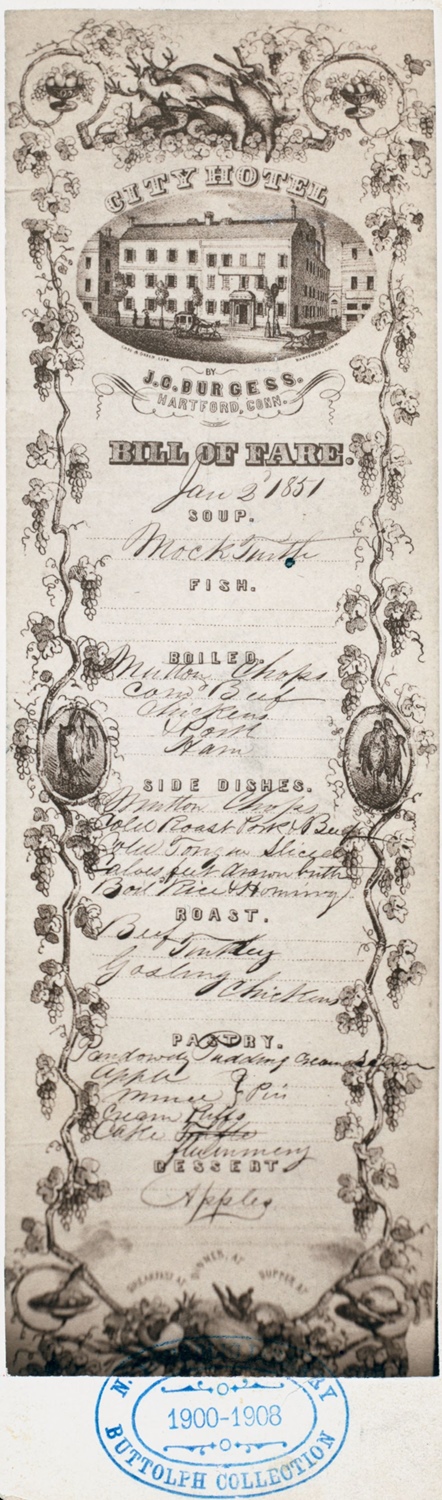 CITY HOTEL
BY
J.C. BURGESS.
HARTFORD, CONN.
BILL OF FARE.
Jan 2 1851
SOUP.
Mock Turtle
FISH.
BOILED.
Mutton Chops
Corn'd Beef
Chickens
Pork
Ham
SIDE DISHES.
Mutton Chops
Cold Roast Pork & Beef
Cold Tongue Sliced
Calves feet Drawn butter
Boil Rice & Hominy
ROAST.
Beef
Turkey
Gosling
Chickens
PASTRY.
Pandowdy Pudding Cream
Apple
Mince } Pies
Cream Puffs
Cake
DESSERT.
Apples
BREAKFAST AT DINNER, AT SUPPER AT
1900-1908
BUTTOLPH COLLECTION